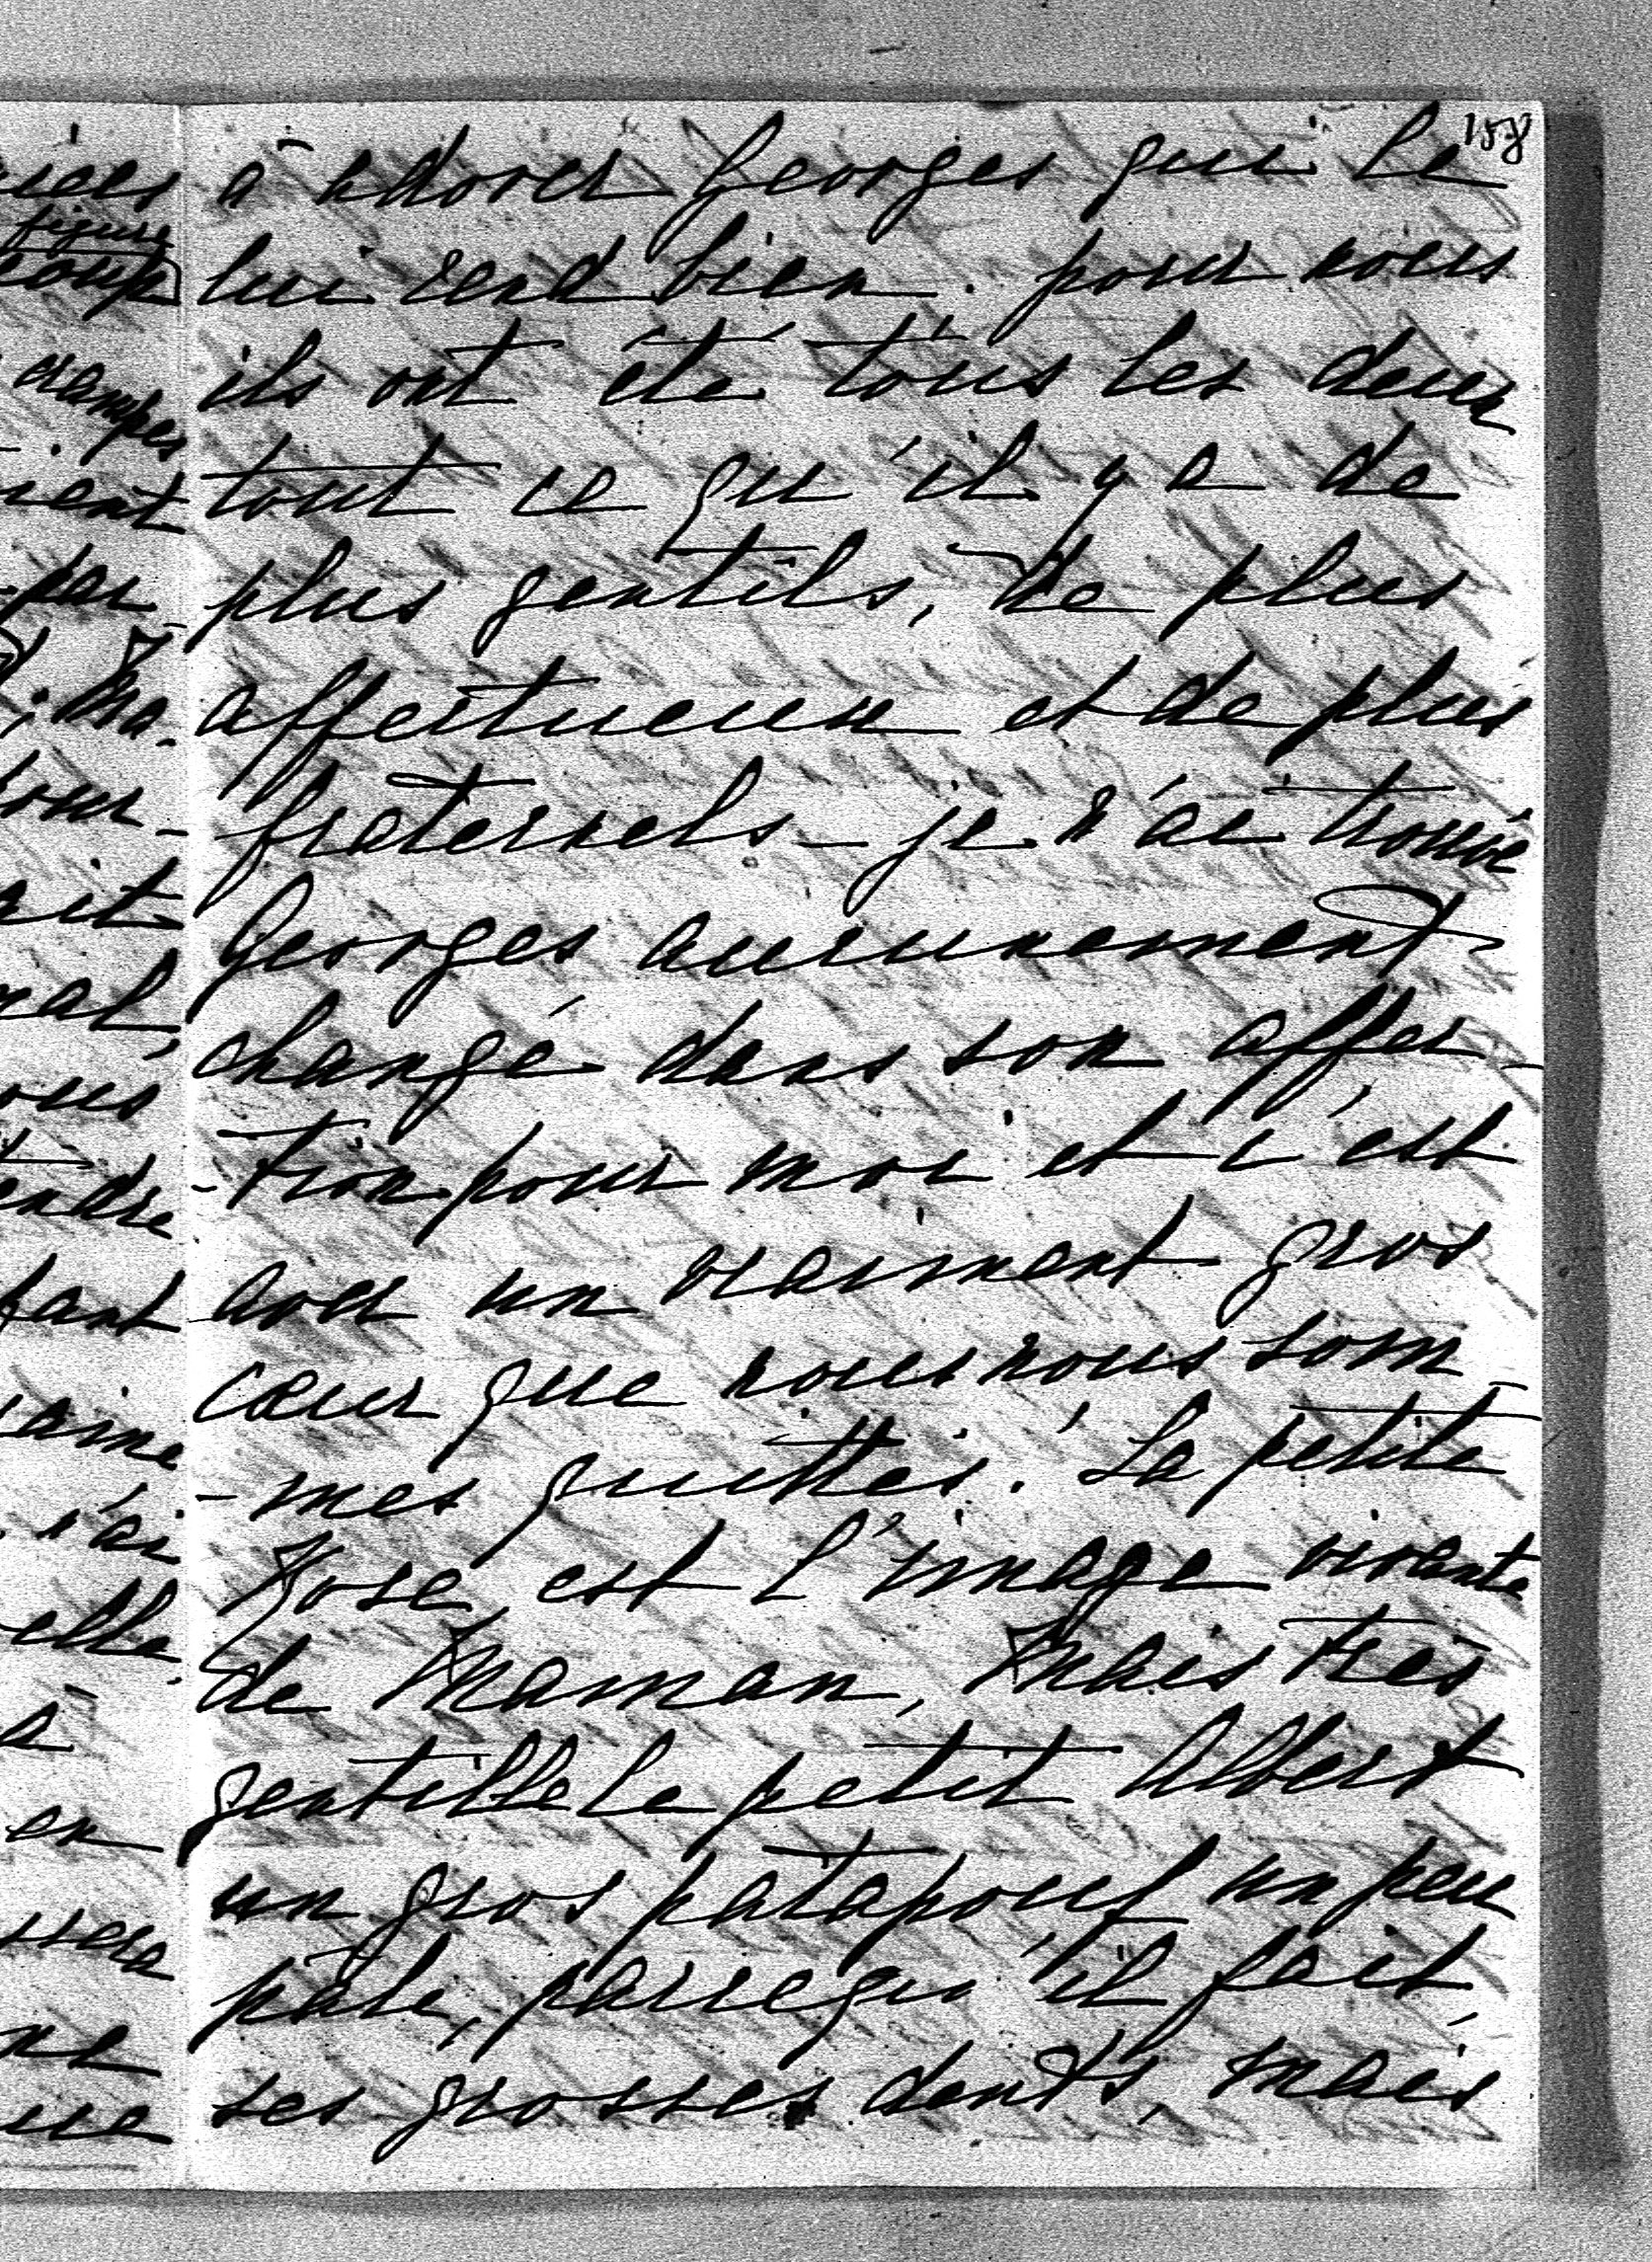 158
à adorer Georges qui le
lui rend bien. pour nous
ils ont été tous les deux
tout ce qu'il y a de
plus gentils, de plus
affectueux et de plus
fraternels - je n'ai trouvé
Georges aucunement
changé dans son affec-
-tion pour moi et c'est
avec un vraiment gros
cœur que nous nous som-
-mes quittés. La petite
Rose, est l'image vivante
de Maman, Mais très
gentille le petit Albert
un gros patapouf un peu
pâle, parcequ'il fait
ses grosses dents, mais